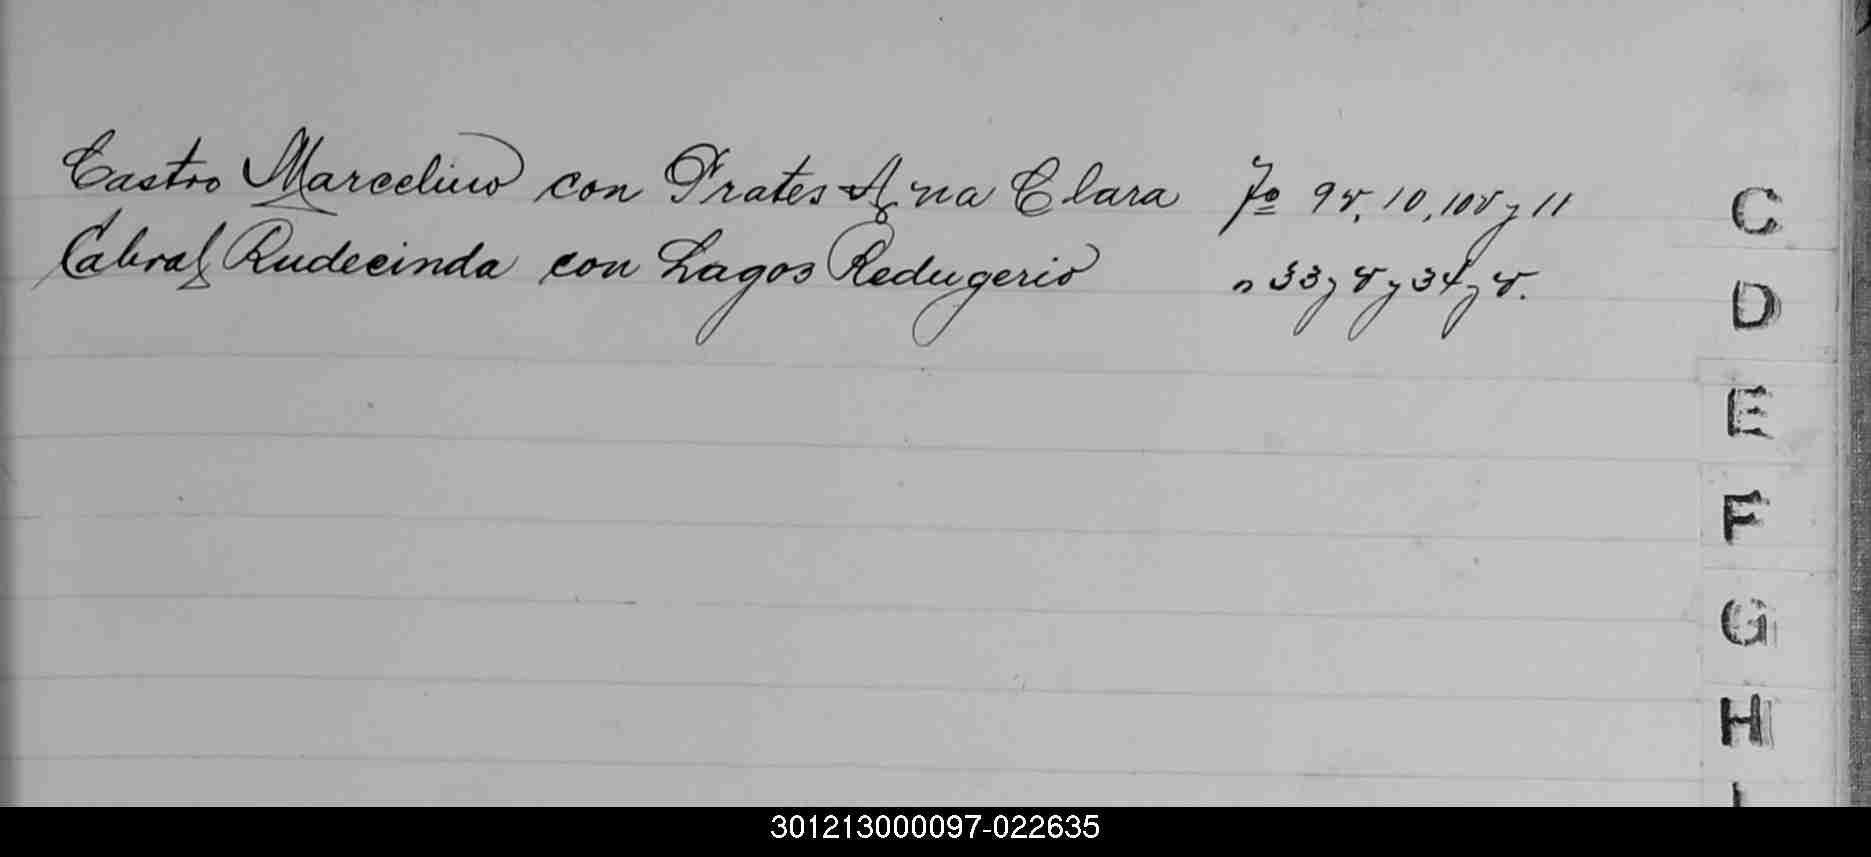 Castro Marcelino con Prates Ana Clara Fo 9v, 10, 10v y 11
Cabral Rudecinda con Lagos Redugerio " 33 y v y 34 y v.
C
D
E
F
G
H
I
301213000097-022635